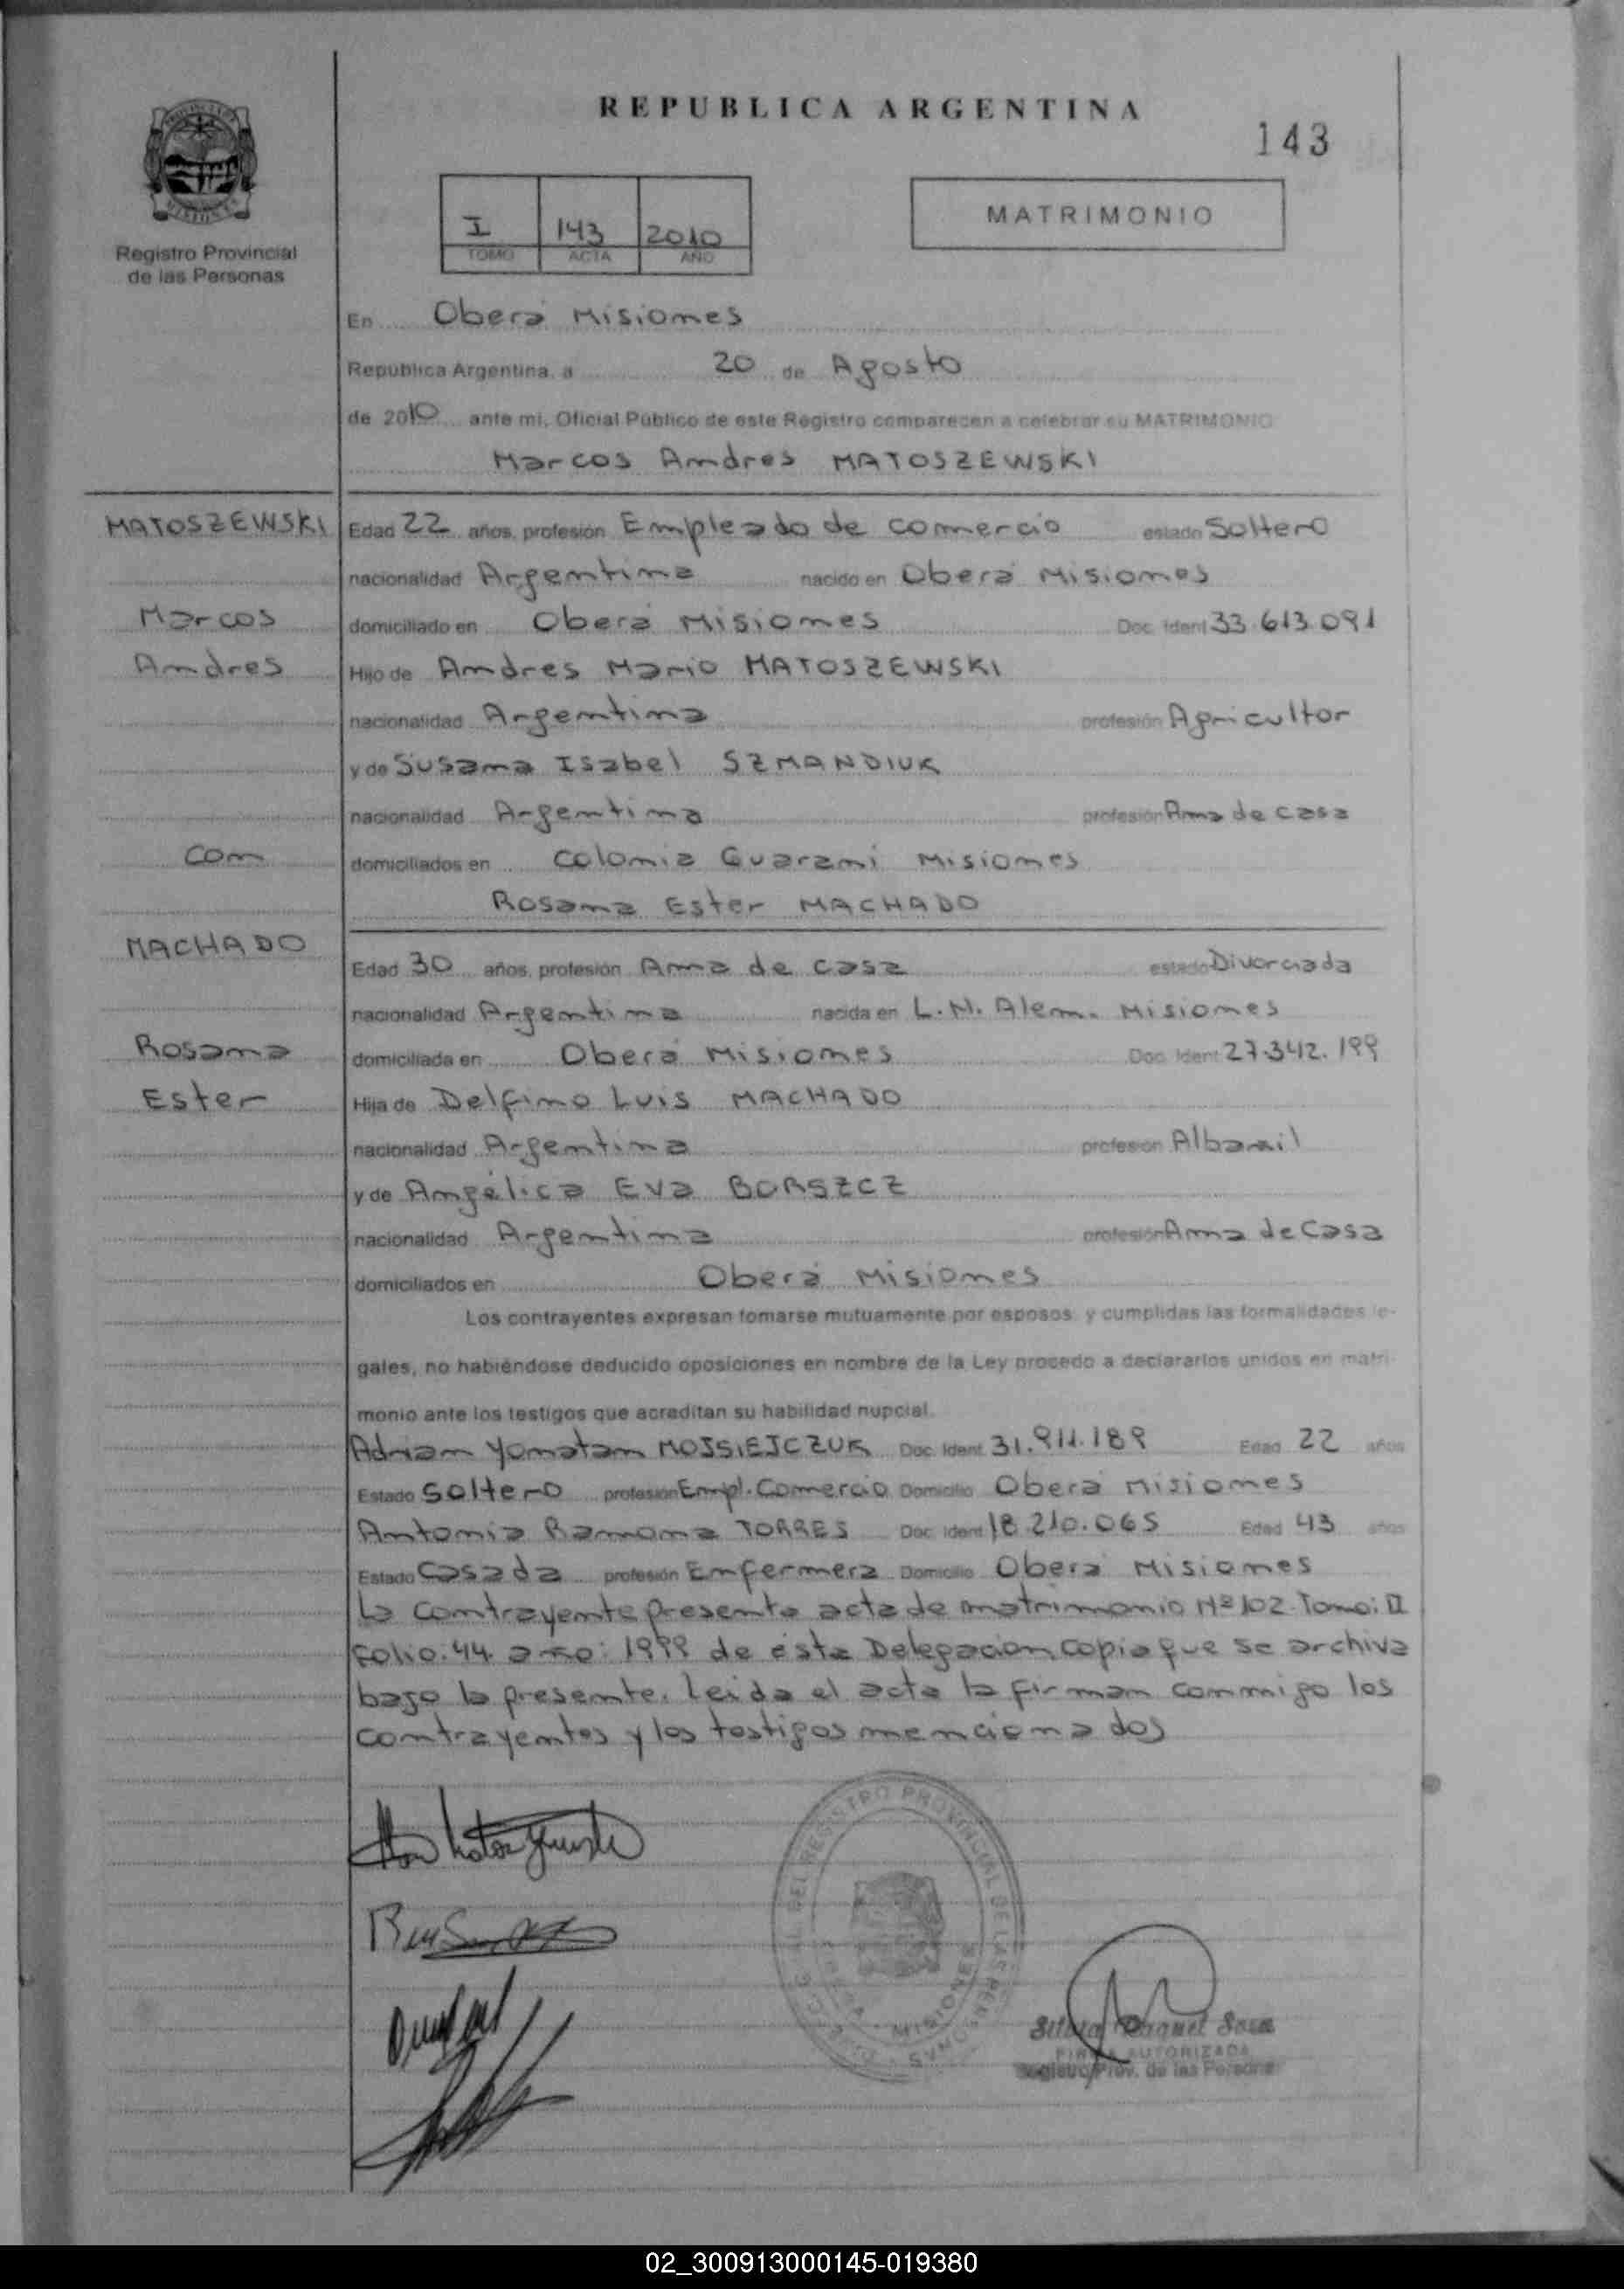 REPUBLICA ARGENTINA
143
Registro Provincial
de las Personas
I 143 2010
TOMO ACTA AÑO
MATRIMONIO
En Oberá Misiones
Republica Argentina, a 20 de Agosto
de 2010 ante mi, Oficial Público de este Registro comparecen a celebrar su MATRIMONIO
Marcos Andres MATOSZEWSKI
MATOSZEWSKI
Marcos
Andres
Con
MACHADO
Rosana
Ester
Edad 22 años, profesión Empleado de comercio estado Soltero
nacionalidad Argentina nacido en Oberá Misiones
domiciliado en Oberá Misiones Doc. Ident 33.613.091
Hijo de Andres Mario MATOSZEWSKI
nacionalidad Argentina profesión Agricultor
y de Susana Isabel SZMANDIUK
nacionalidad Argentina profesión Ama de casa
domiciliados en Colonia Guaraní Misiones
Rosana Ester MACHADO
Edad 30 años, profesión Ama de casa estado Divorciada
nacionalidad Argentina nacida en L.N. Alem. Misiones
domiciliada en Oberá Misiones Doc. Ident 27.342.199
Hija de Delfino Luis MACHADO
nacionalidad Argentina profesión Albañil
y de Angélica Eva BORSZCZ
nacionalidad Argentina profesión Ama de Casa
domiciliados en Oberá Misiones
Los contrayentes expresan tomarse mutuamente por esposos y cumplidas las formalidades le-
gales, no habiéndose deducido oposiciones en nombre de la Ley procedo a declararlos unidos en matri-
monio ante los testigos que acreditan su habilidad nupcial.
Adrian Yonatan MOISIEJCZUK Doc. Ident. 31.911.189 Edad 22 años
Estado Soltero profesión Empl. Comercio Domicilio Oberá Misiones
Antonia Ramona TORRES Doc. Ident. 18.210.065 Edad 43 años
Estado Casada profesión Enfermera Domicilio Oberá Misiones
La contrayente presenta acta de matrimonio Nº 102 Tomo: II
folio: 44. año: 1999 de ésta Delegación copia que se archiva
bajo la presente. Leída el acta la firman conmigo los
contrayentes y los testigos mencionados
REGISTRO PROVINCIAL DE LAS PERSONAS
MISIONES
Silvia Raquel Sosa
FIRMA AUTORIZADA
Registro Prov. de las Personas
02_300913000145-019380